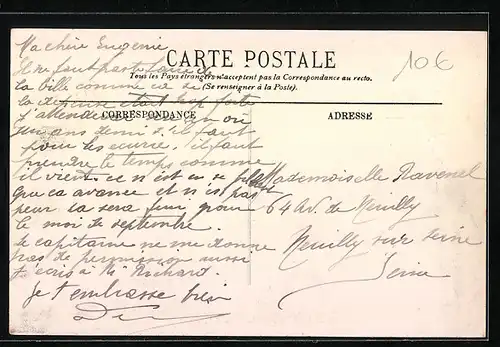 Ma chère Eugenie
CARTE POSTALE
106
Il ne faut pas
Tous les Pays étrangers n'acceptent pas la Correspondance au recto.
(Se renseigner à la Poste).
la bille comme
la
j'attende
CORRESPONDANCE
ADRESSE
un ans demi s'il faut
pour les s'il faut
prendre le temps comme
il vient ce n'est
que ca avance et n'est pas
peur ca sera fini pour
le moi de septembre.
Le capitaine ne me donne
pas de permission aussi
j'ecris à Mr Richard.
Je t'embrasse bien
Mademoiselle Ravenel
64 Av. de Neuilly
Neuilly sur seine
Seine